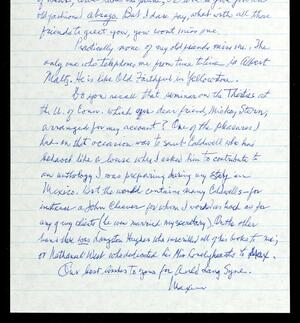 old fashioned abrazo. But I dare say, what with all those
friends to greet you, you wont miss one.
Practically none of my old friends miss me. The
only one who telephones me from time to time is Albert
Maltz. He is like Old Faithful in Yellowstone.
Do you recall that seminar on the Thirties at
the U. of Conn. which our dear friend, Mickey Stern,
arranged for my account? One of the pleasures I
had on that occasion was to snub Caldwell who had
behaved like a louse when I asked him to contribute to
an anthology I was preparing during my stay in
Mexico. But the world contains many Caldwells – for
instance a John Cheever – for whom I worked as hard as for
any of my clients (he even married my secretary). On the other
hand there was Langston Hughes who inscribed all of his books to me;
or Nathanael West who dedicated his Miss Lonelyhearts to
Our best wishes to you for Auld Lang Syne.
Maxim